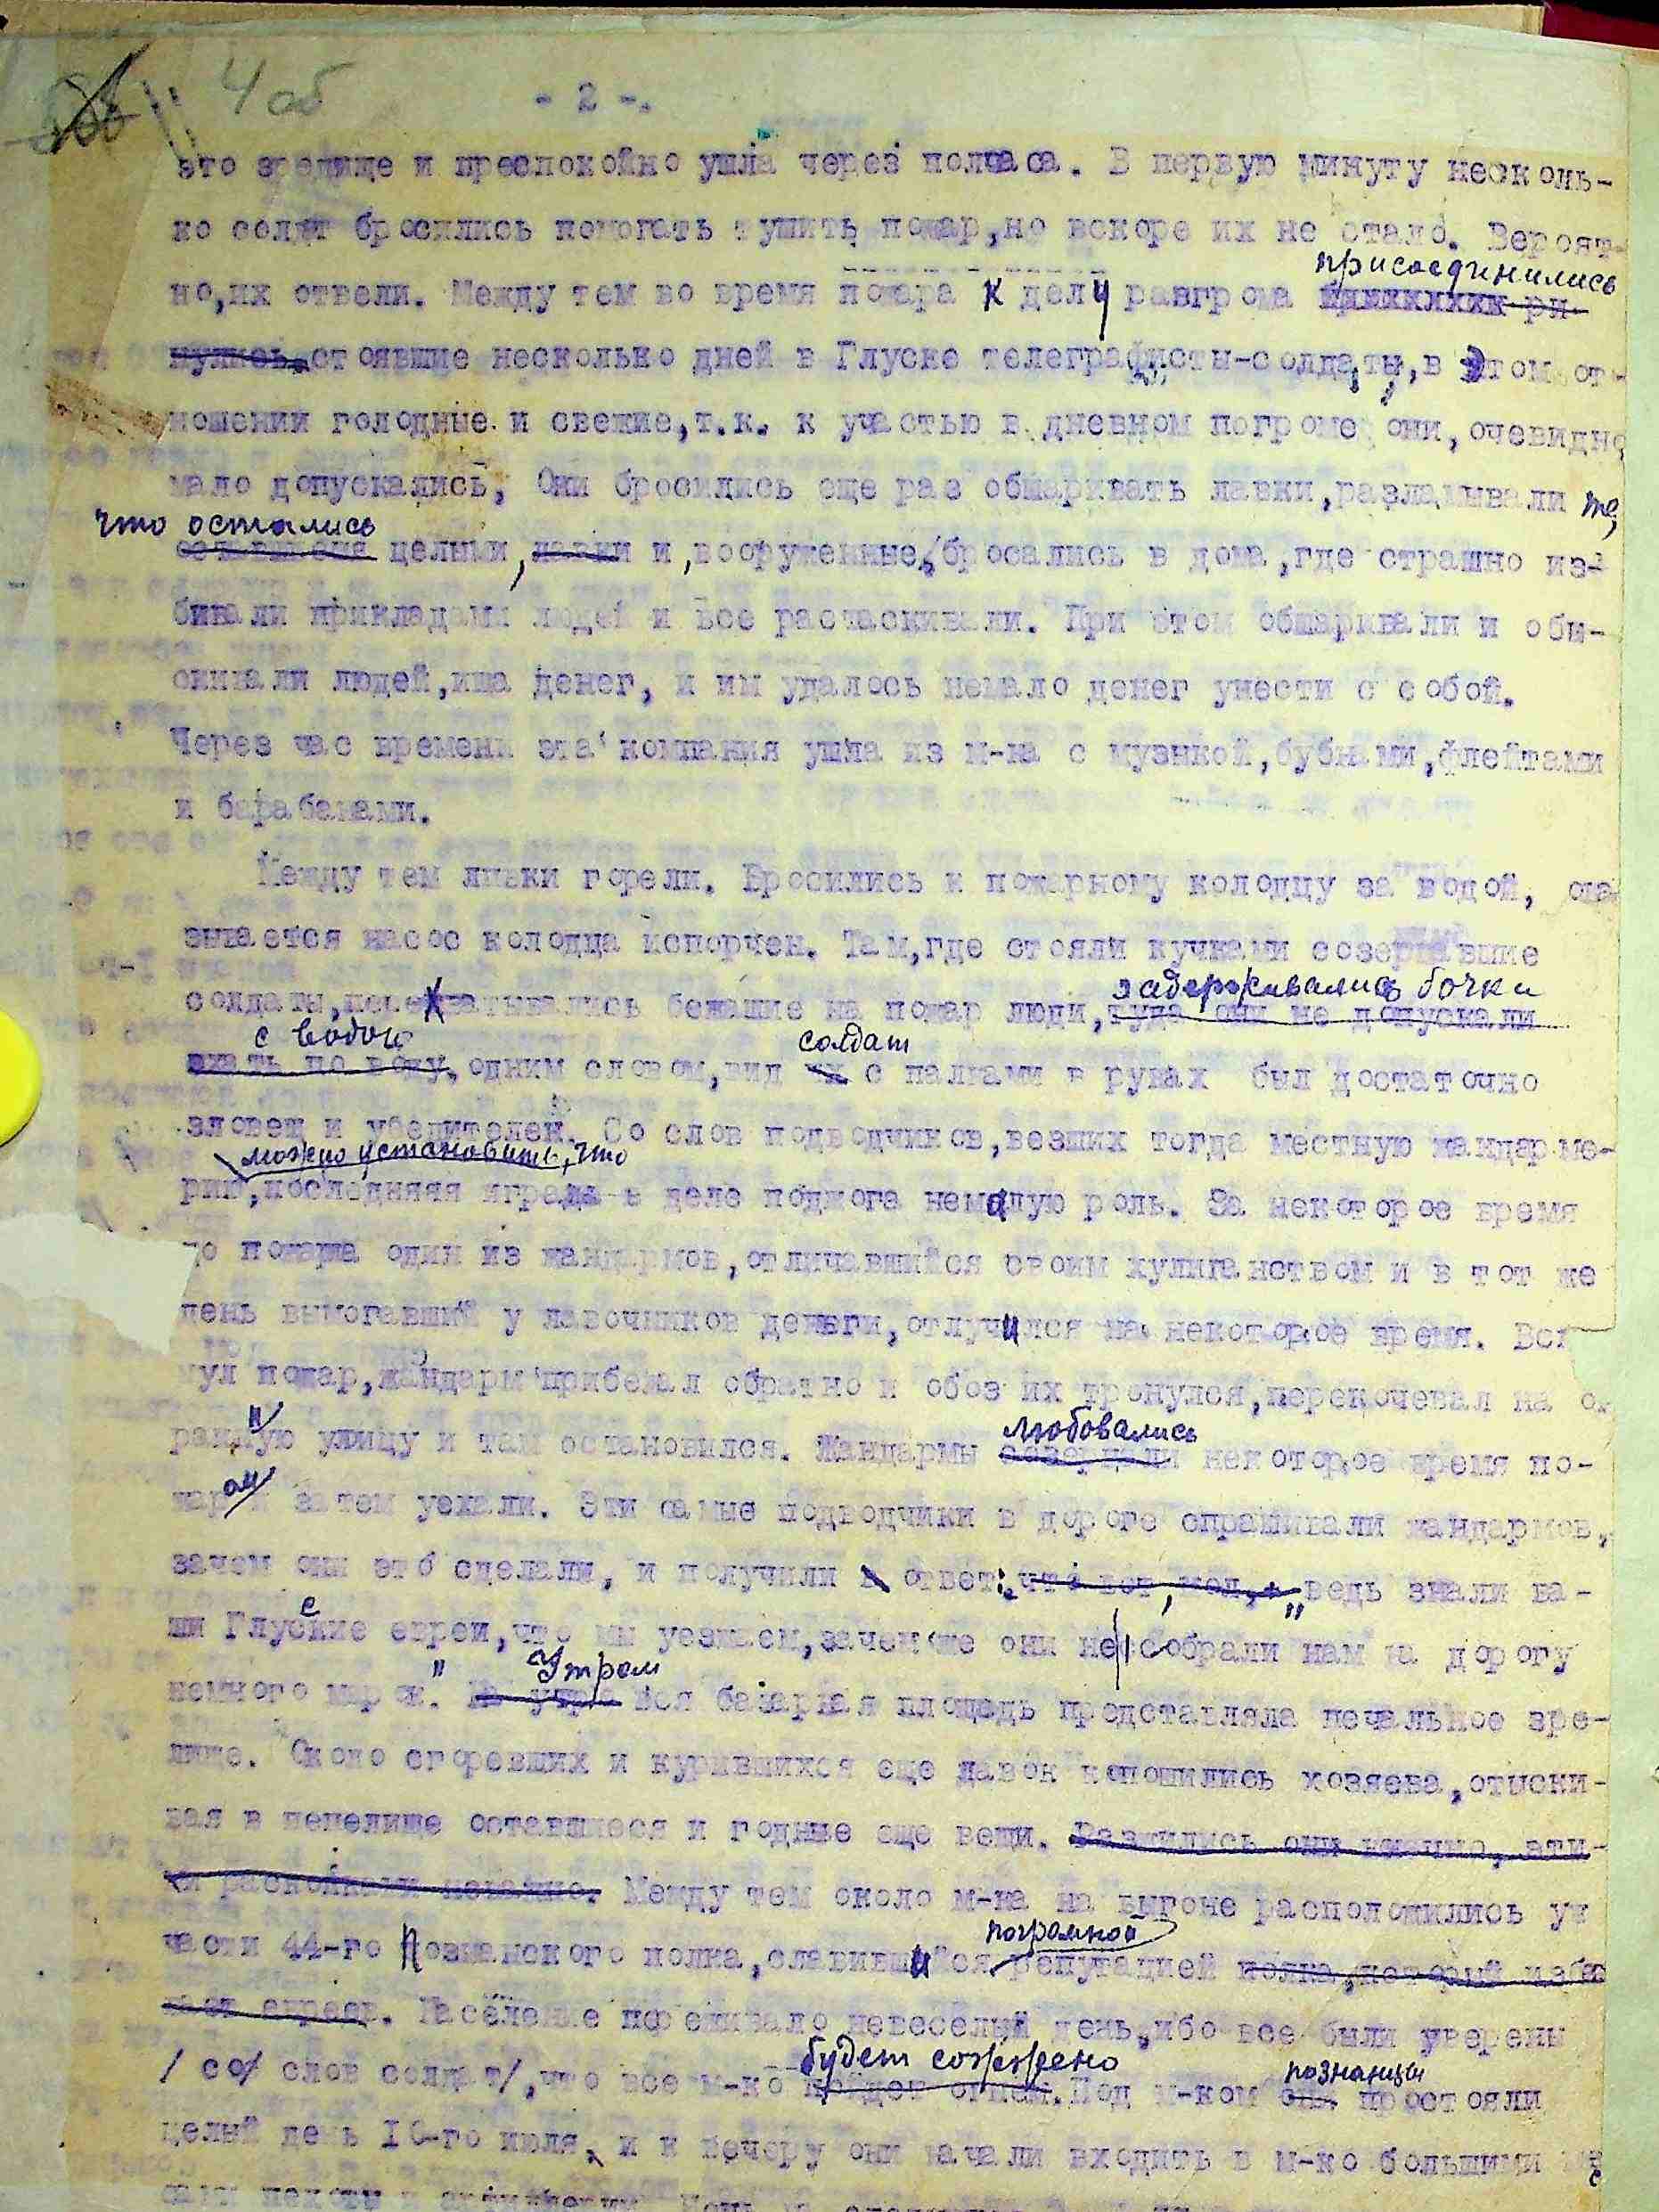 4 об
- 2 -.
это зрелище и преспокойно ушла через полчаса. В первую минуту несколь-
ко солдат бросились помогать тушить пожар,но вскоре их не стало. Вероят-
присоединились
но,их отвели. Между тем во время пожара к делу разгрома ри-
нулись стоявшие несколько дней в Глуске телеграфисты-солдаты,в этом от-
ношении голодные и свежие,т.к. к участью в дневном погроме они,очевидно
мало допускались, Они бросились еще раз обшаривать лавки,разламывали те,
что остались
оставшиеся целыми, лавки и,вооруженные,бросались в дома,где страшно из-
бивали прикладами людей и все растаскивали. При этом обшаривали и обы-
скивали людей,ища денег, и им удалось немало денег унести с собой.
Через час времени эта компания ушла из м-ка с музыкой,бубнами,флейтами
и барабанами.
Между тем лавки горели. Бросились к пожарному колодцу за водой, ока
зывается насос колодца испорчен. Там,где стояли кучками созерцавшие
задерживались бочки
солдаты,перехватывались бежавшие на пожар люди,туда они не допускали
с водою солдат
ехать по воду, одним словом,вид их с палками в руках был достаточно
зловещ и убедителен. Со слов подводчиков,везших тогда местную жандарме-
можно установить, что
рию,последняя играла в деле поджога немалую роль. За некоторое время
до пожара один из жандармов,отличавшийся своим хулиганством и в тот же
день вымогавший у лавочников деньги,отлучился на некоторое время. Вспых
нул пожар,жандарм прибежал обратно и обоз их тронулся,перекочевал на ок
н любовались
раинную улицу и там остановился. Жандармы созерцали некоторое время по-
ом
жар и затем уехали. Эти самые подводчики в дороге спрашивали жандармов,
зачем они это сделали, и получили в ответ: что вот, мол, "ведь знали ва-
с
ши Глуские евреи,что мы уезжаем,зачем же они не собрали нам на дорогу
Утром
немного марок." На утро вся базарная площадь представляла печальное зре-
лище. Около сгоревших и курившихся еще лавок копошились хозяева,отыски-
вая в пепелище оставшиеся и годные еще вещи.
Между тем около м-ка на выгоне расположились уж
погромной
части 44-го Познанского полка,славившийся репутацией полка,который
евреев. Население переживало невеселый день,ибо все были уверены
будет сожжено познанцы
/ со слов солдат/,что все м-ко пойдет огнем.Под м-ком они простояли
целый день 10-го июля, и к вечеру они начали входить в м-ко большими